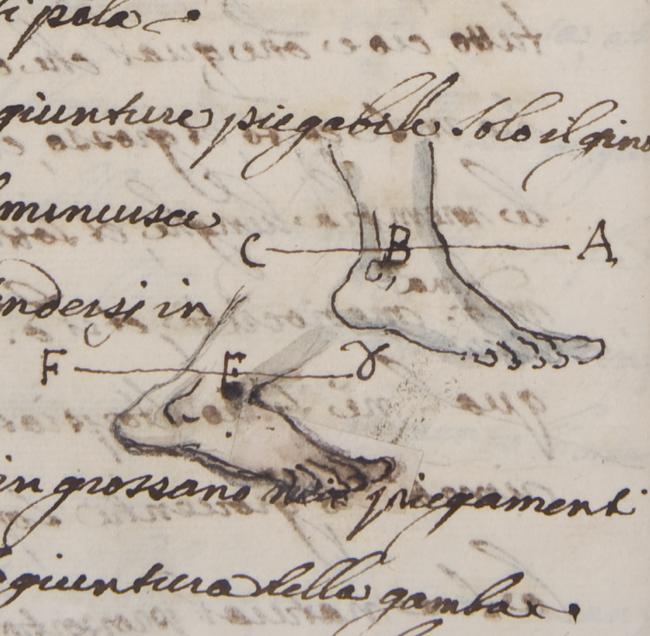 di pola
giunture piegabile solo il gino
minuisce
C B A
ndersi in
F E D
in grossano nei piegamenti
giuntura della gamba.